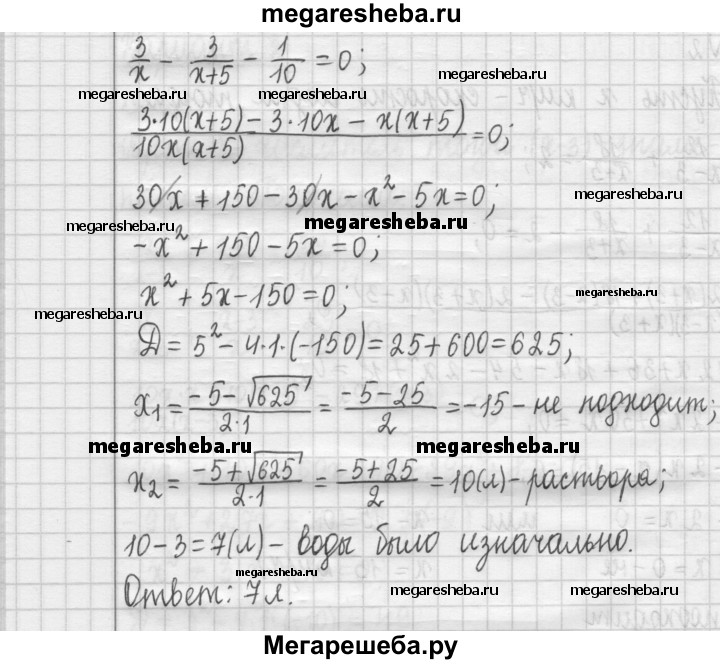 megaresheba.ru
3/x - 3/(x+5) - 1/10 = 0;
megaresheba.ru
megaresheba.ru megaresheba.ru
(3·10(x+5) - 3·10x - x(x+5))/(10x(x+5)) = 0;
30x + 150 - 30x - x² - 5x = 0;
megaresheba.ru
megaresheba.ru megaresheba.ru
-x² + 150 - 5x = 0;
x² + 5x - 150 = 0;
megaresheba.ru
megaresheba.ru
Д = 5² - 4·1·(-150) = 25 + 600 = 625;
x₁ = (-5 - √625)/(2·1) = (-5 - 25)/2 = -15 - не подходит;
megaresheba.ru megaresheba.ru
x₂ = (-5 + √625)/(2·1) = (-5 + 25)/2 = 10(л) - раствора;
10 - 3 = 7(л) - воды было изначально.
megaresheba.ru
Ответ: 7л.
megaresheba.ru megaresheba.ru
Мегарешеба.ру